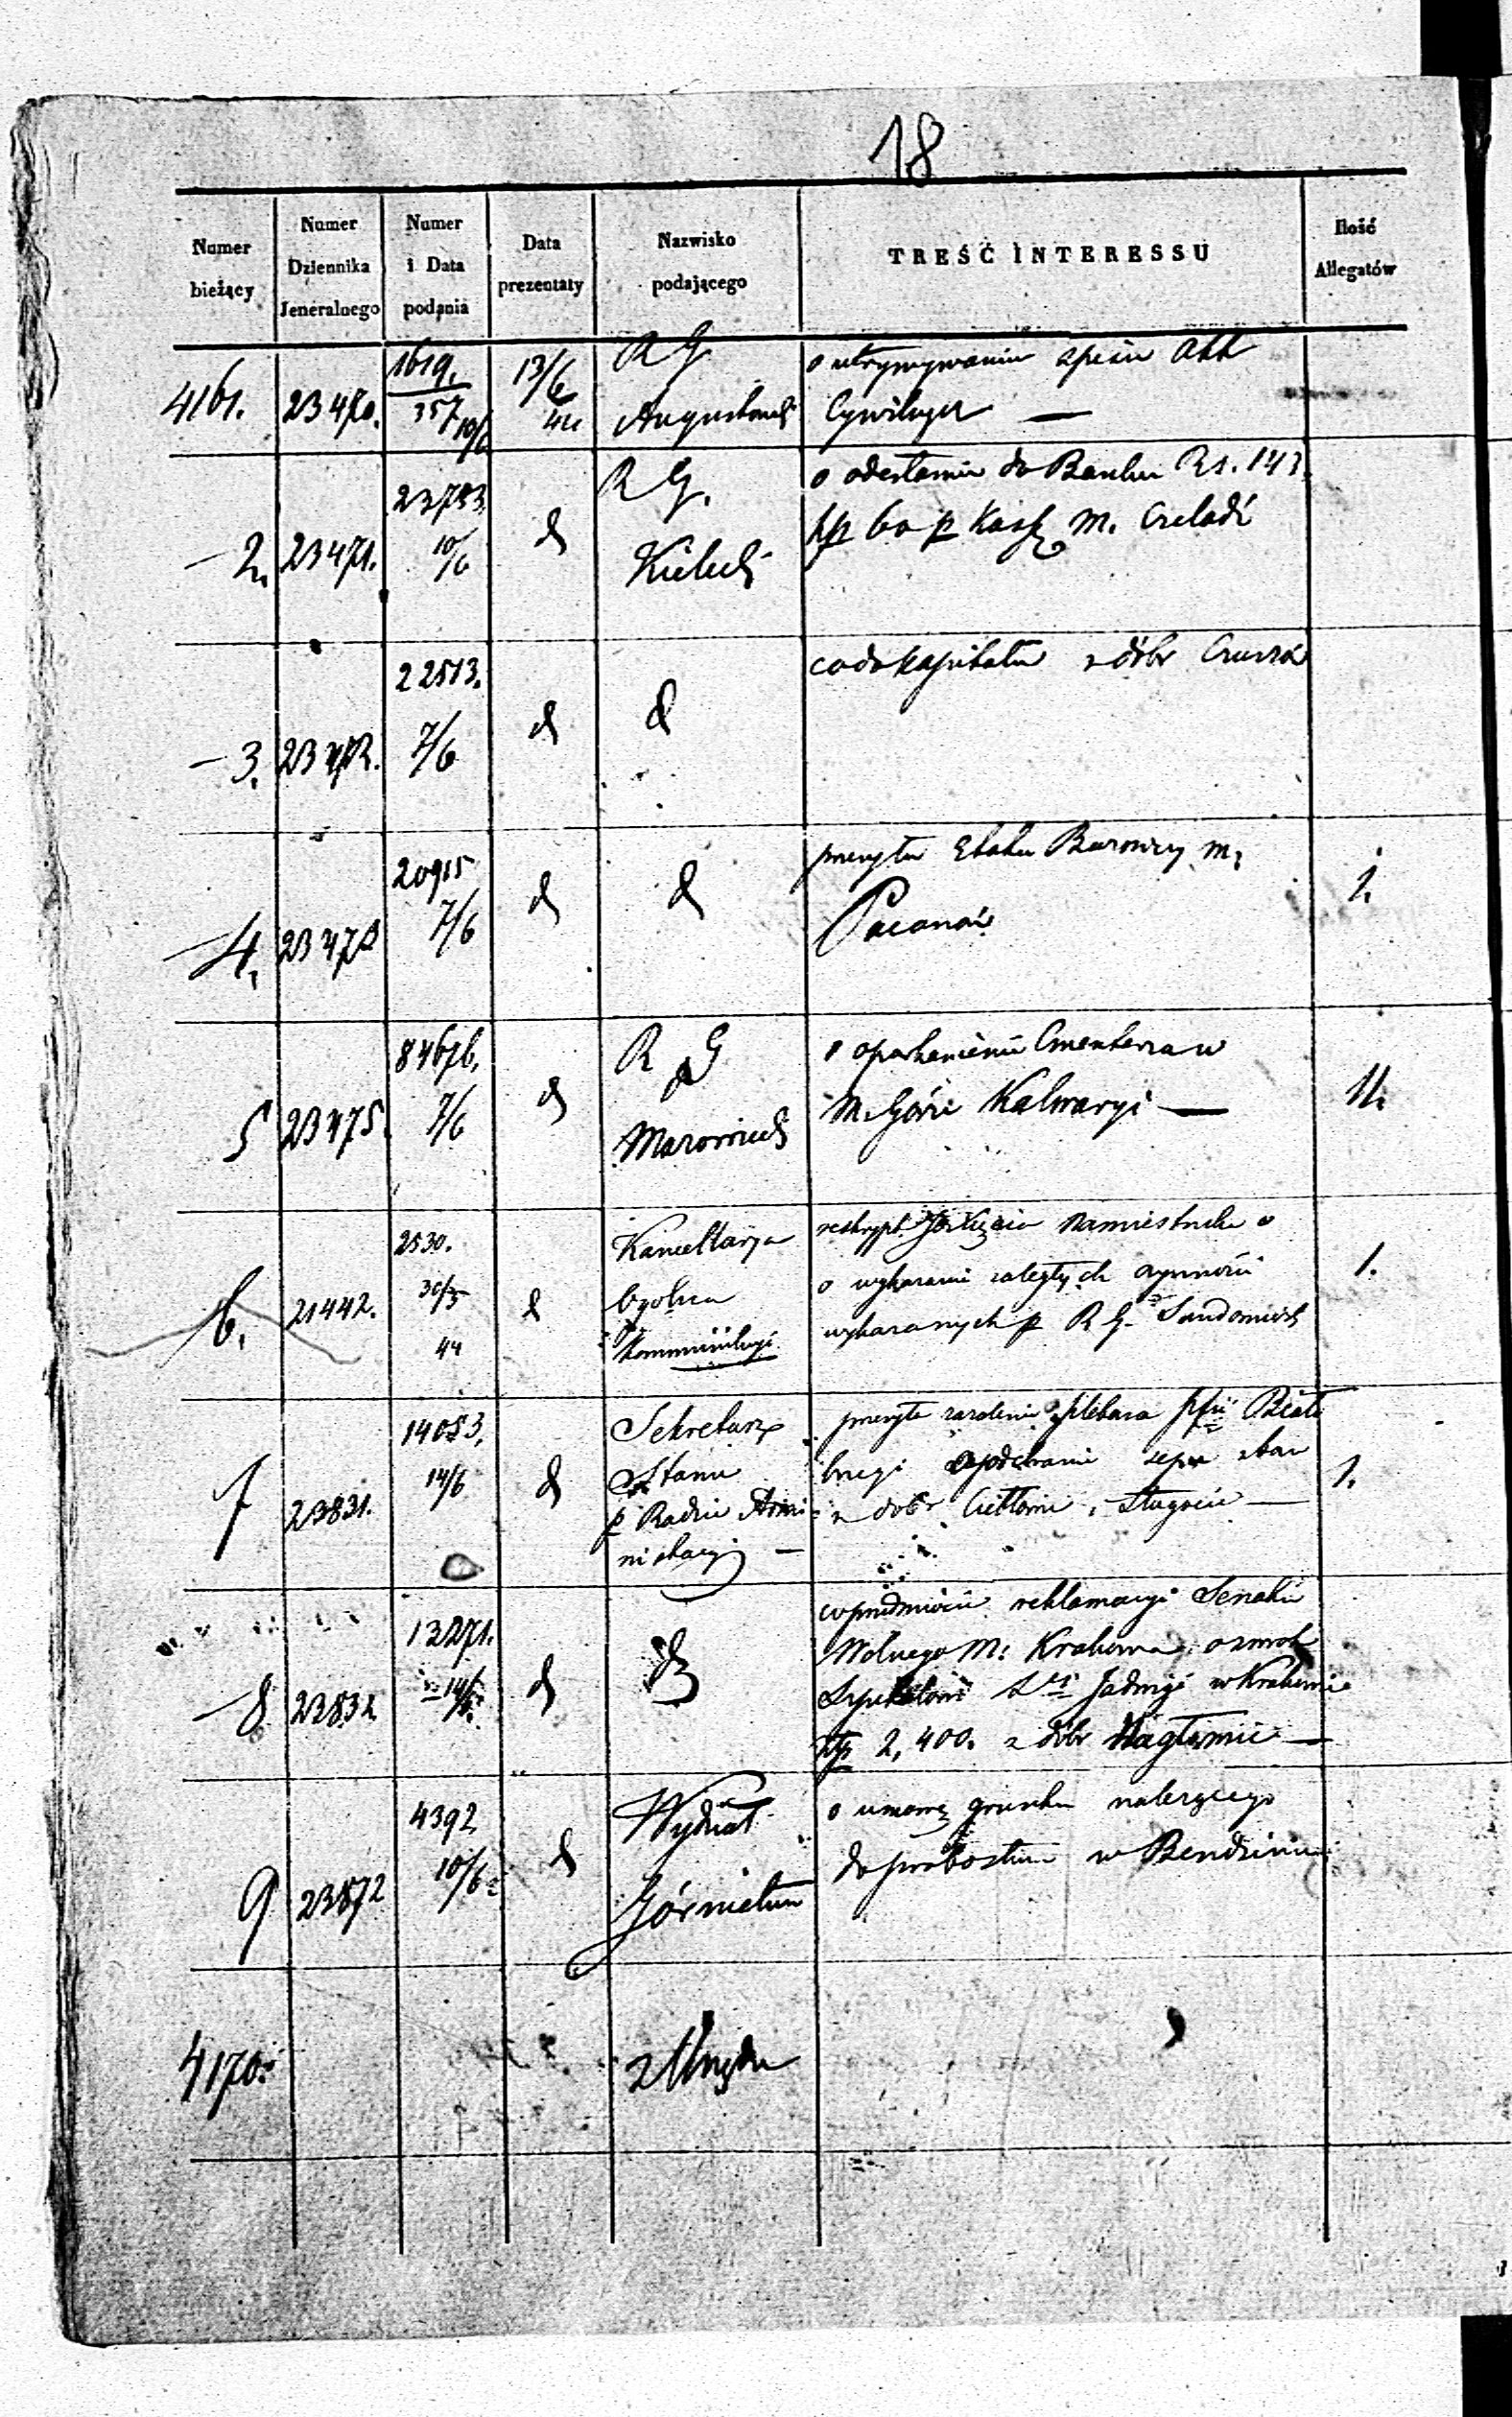 18
Numer bieżący
Numer Dziennika Jeneralnego
Numer i Data podania
Data prezentaty
Nazwisko podającego
TREŚĆ INTERESSU
Ilość Allegatów
4161. 23470. 1619. 357 10/6 13/6 44 R G
Augustowski
o utrzymywaniu Akt
Cywilnych —
— 2. 23471. 23783. 10/6 d R G.
Kielecki
o odesłaniu do Banku Rs. 143.
kp 60 p Kassę M. Czeladź
— 3. 23472. 22513. 7/6 d d
co do kapitału z dóbr
— 4. 23473 20915 7/6 d d
przesyła Etat M.
Pacanów
1.
5 23475. 84676. 7/6 d R G
Mazowiecki
o oparkanieniu Cmentarza w
M. Górze Kalwaryi —
11.
6. 21442. 2530. 30/5 44 d Kancellarya
Ogólna
Kommissyi
reskrypt Namiestnika o
o wykazanie zaległych czynności
wykazanych p R G. Sandomirski
1.
7 23831. 14083. 14/6 d Sekretarz
Stanu
p Radzie Admi-
nistracyi —
przesyła zażalenie plebana
z dóbr —
1.
— 8 23832 13271. 14/6 d d
w przedmiocie reklamacyi Senatu
Wolnego M. Krakowa o zwrot
Szpitalowi Stej Jadwigi w Krakowie
złp 2,400. z dóbr Nagłowice —
9 23872 4392 10/6 d Wydział
Górnictwa
o umowę gruntu należącego
do probostwa w Bendzinie
4170. z Urzędu